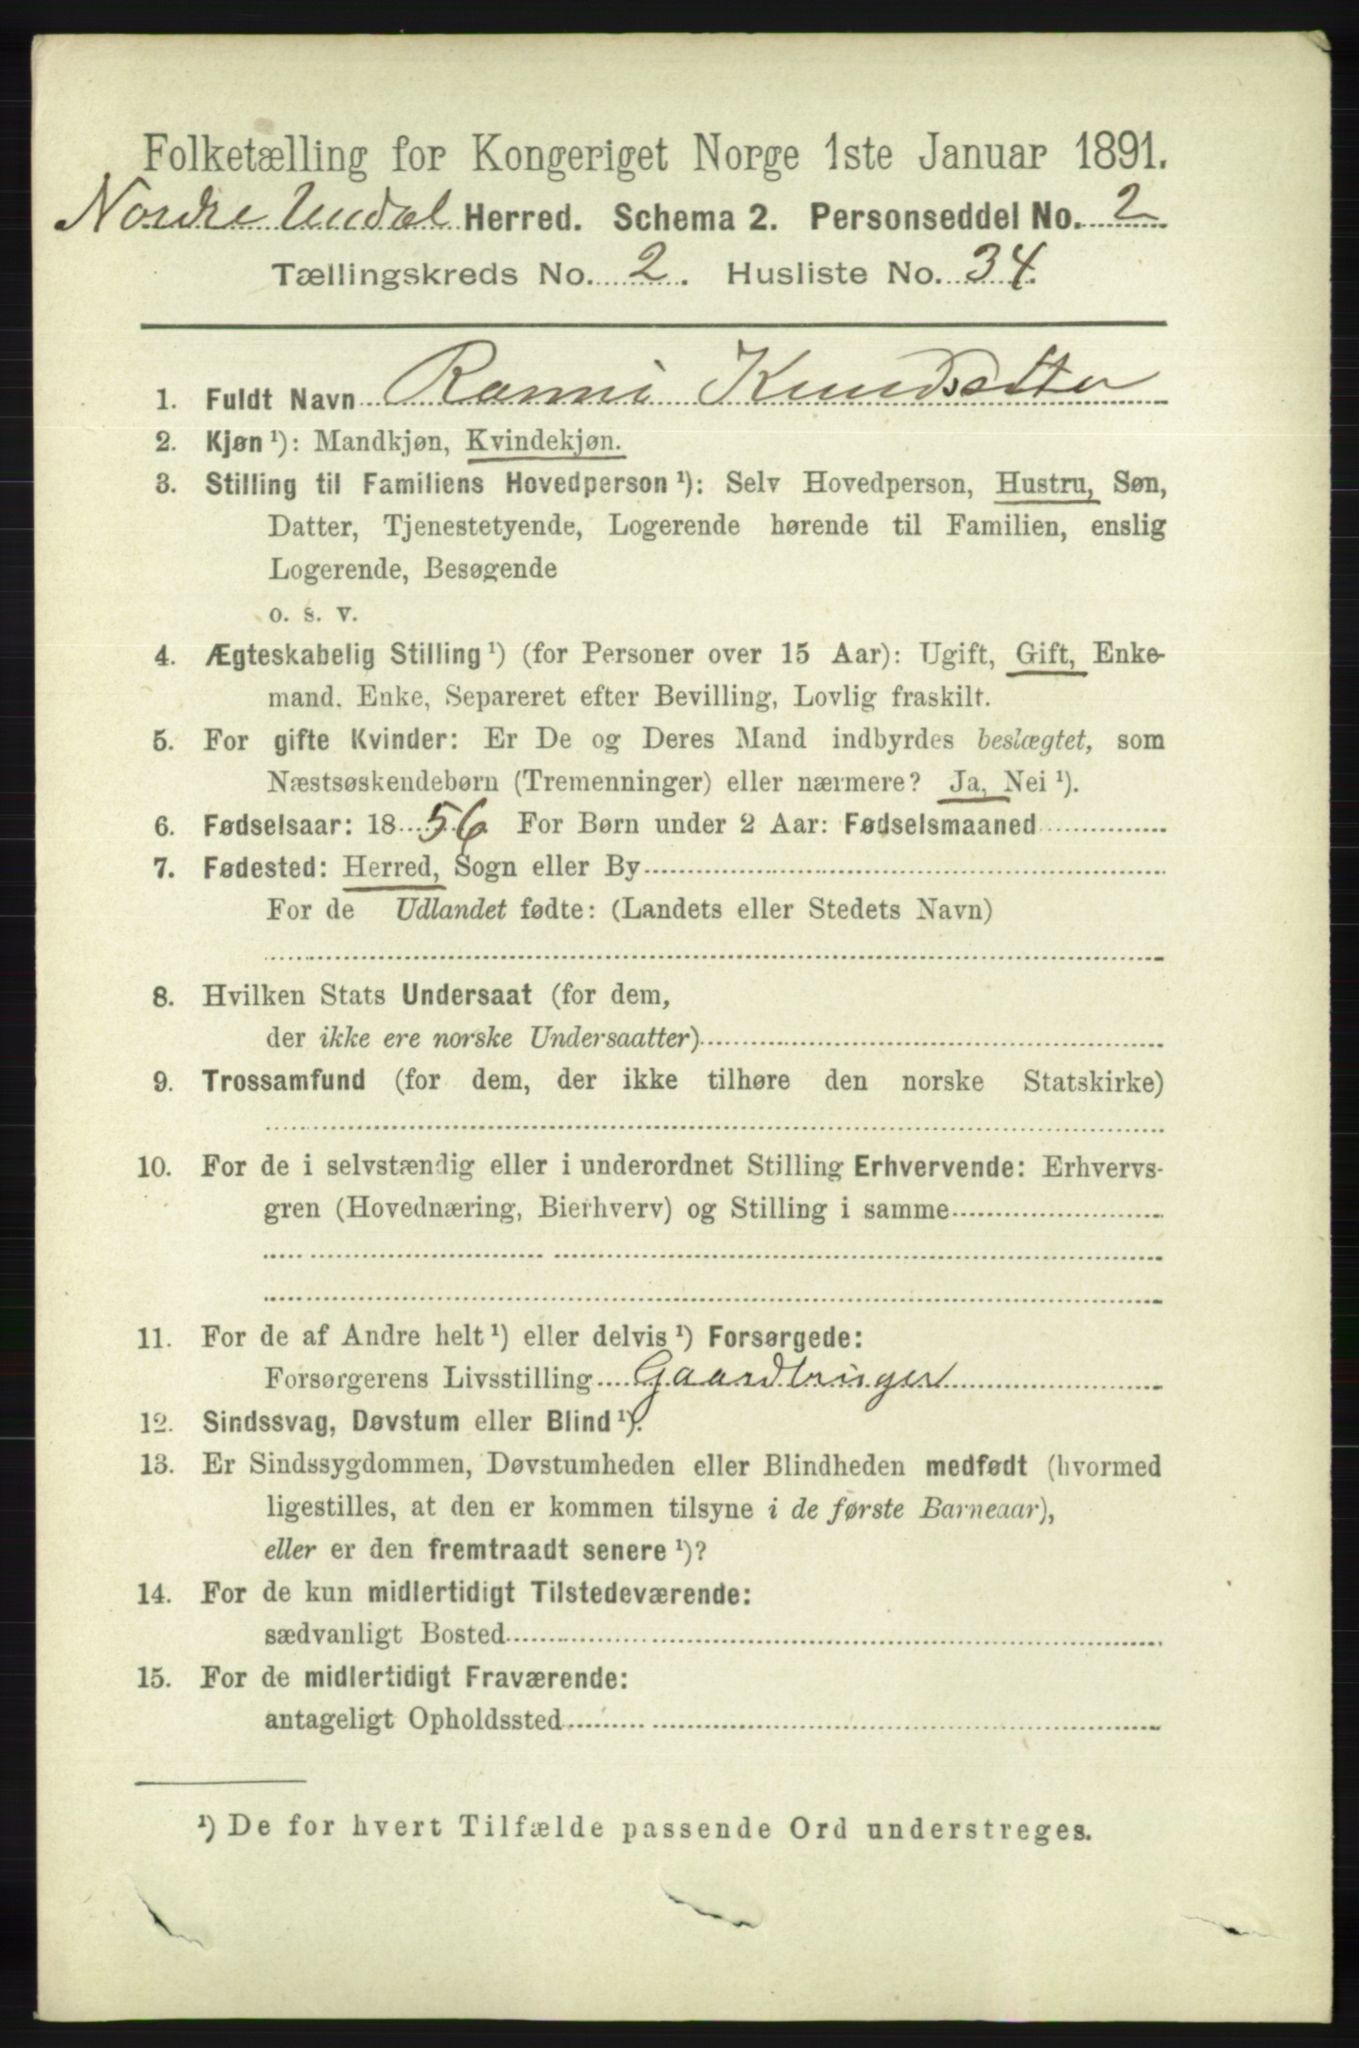 Folketælling for Kongeriget Norge 1ste Januar 1891.
Nordre Undal Herred. Schema 2. Personseddel No. 2
Tællingskreds No. 2. Husliste No. 34.
1. Fuldt Navn Ranni Knudsdtter
2. Kjøn ¹): Mandkjøn, Kvindekjøn.
3. Stilling til Familiens Hovedperson ¹): Selv Hovedperson, Hustru, Søn,
Datter, Tjenestetyende, Logerende hørende til Familien, enslig
Logerende, Besøgende
o. s. v.
4. Ægteskabelig Stilling ¹) (for Personer over 15 Aar): Ugift, Gift, Enke-
mand, Enke, Separeret efter Bevilling, Lovlig fraskilt.
5. For gifte Kvinder: Er De og Deres Mand indbyrdes beslægtet, som
Næstsøskendebørn (Tremenninger) eller nærmere? Ja, Nei ¹).
6. Fødselsaar: 1856 For Børn under 2 Aar: Fødselsmaaned
7. Fødested: Herred, Sogn eller By
For de Udlandet fødte: (Landets eller Stedets Navn)
8. Hvilken Stats Undersaat (for dem,
der ikke ere norske Undersaatter)
9. Trossamfund (for dem, der ikke tilhøre den norske Statskirke)
10. For de i selvstændig eller i underordnet Stilling Erhvervende: Erhvervs-
gren (Hovednæring, Bierhverv) og Stilling i samme
11. For de af Andre helt ¹) eller delvis ¹) Forsørgede:
Forsørgerens Livsstilling Gaardbruger
12. Sindssvag, Døvstum eller Blind ¹).
13. Er Sindssygdommen, Døvstumheden eller Blindheden medfødt (hvormed
ligestilles, at den er kommen tilsyne i de første Barneaar),
eller er den fremtraadt senere ¹)?
14. For de kun midlertidigt Tilstedeværende:
sædvanligt Bosted
15. For de midlertidigt Fraværende:
antageligt Opholdssted
¹) De for hvert Tilfælde passende Ord understreges.